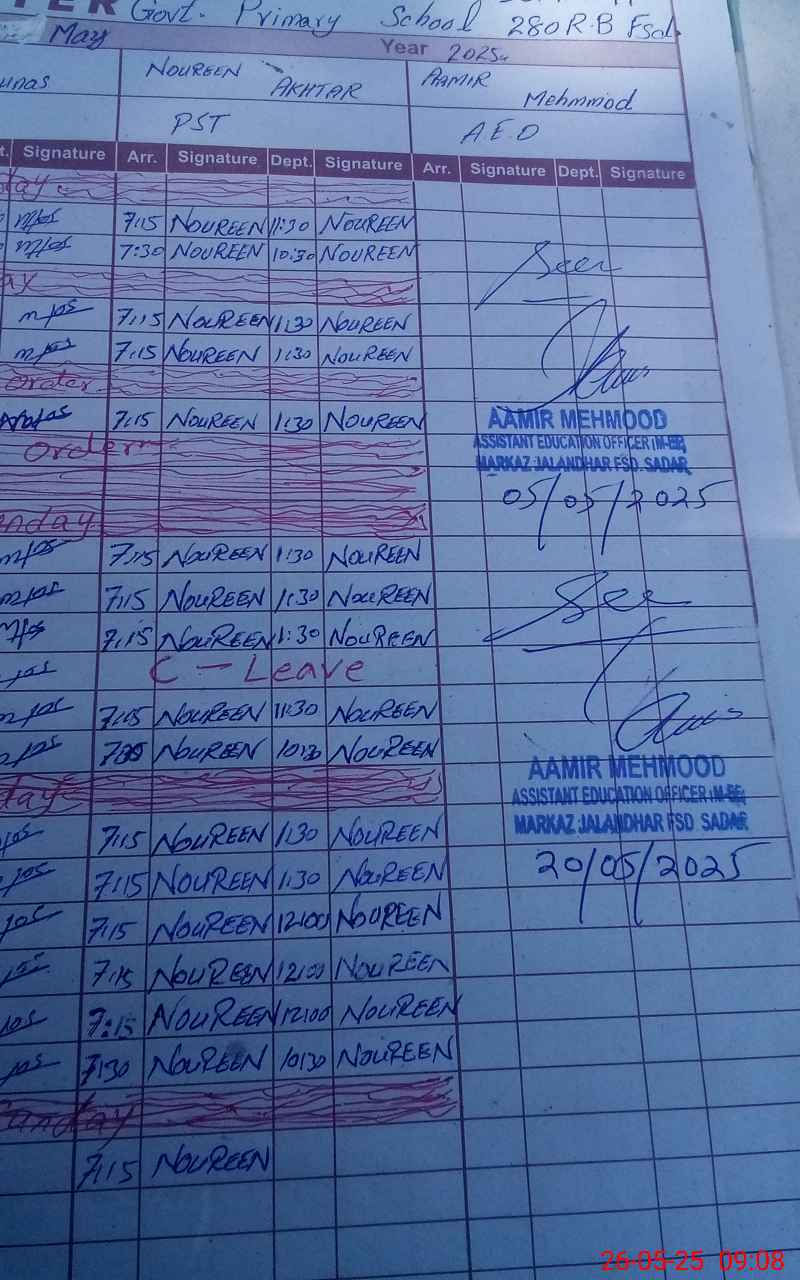 Govt. Primary School 280 R.B Fsd.
May Year 2025
NOUREEN AKHTAR AAMIR Mehmmod
PST A.E.O
Signature Arr. Signature Dept. Signature Arr. Signature Dept. Signature
7:15 NOUREEN 11:30 NOUREEN
7:30 NOUREEN 10:30 NOUREEN
Seen
7:15 NOUREEN 1:30 NOUREEN
7:15 NOUREEN 1:30 NOUREEN
order
7:15 NOUREEN 1:30 NOUREEN
AAMIR MEHMOOD
ASSISTANT EDUCATION OFFICER (M-EE)
MARKAZ JALANDHAR FSD. SADAR
order
05/05/2025
7:15 NOUREEN 1:30 NOUREEN
7:15 NOUREEN 1:30 NOUREEN
See
7:15 NOUREEN 1:30 NOUREEN
C - Leave
7:15 NOUREEN 11:30 NOUREEN
NOUREEN 10:30 NOUREEN
AAMIR MEHMOOD
ASSISTANT EDUCATION OFFICER (M-EE)
MARKAZ JALANDHAR FSD SADAR
7:15 NOUREEN 1:30 NOUREEN
20/05/2025
7:15 NOUREEN 1:30 NOUREEN
7:15 NOUREEN 12:00 NOUREEN
7:15 NOUREEN 12:00 NOUREEN
7:15 NOUREEN 12:00 NOUREEN
7:30 NOUREEN 10:30 NOUREEN
7:15 NOUREEN
26-05-25 09:08